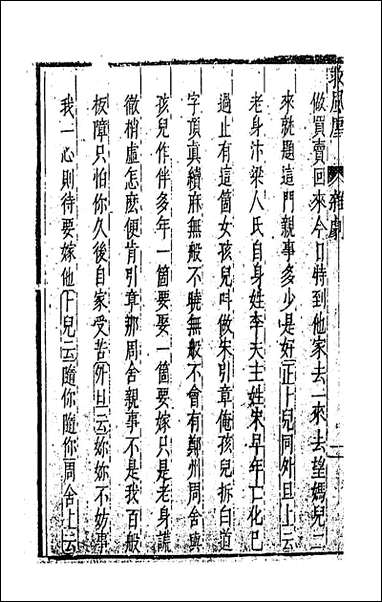 救風塵 雜劇 二
做買賣回來今日特到他家去一來去望媽兒二
來就題這門親事多少是好正上兒同外旦上云
老身汴梁人氏自身姓李夫主姓宋早年亡化已
過止有這箇女孩兒叫做宋引章俺孩兒拆白道
字頂真續麻無般不曉無般不會有鄭州周舍與
孩兒作伴多年一箇要娶一箇要嫁只是老身謊
徹梢虛怎麽便肯引章那周舍親事不是我百般
板障只怕你久後自家受苦外旦云妳妳不妨事
我一心則待要嫁他卜兒云隨你隨你周舍上云